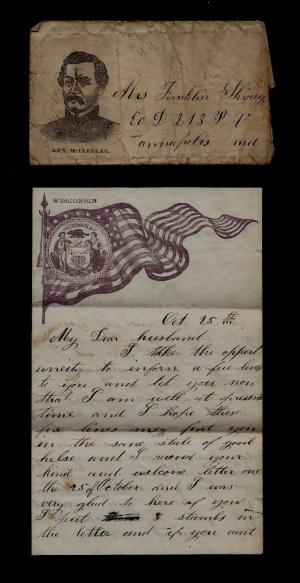 GEN. McCLELLAN.
Mrs Franklin
Co D 213 P V
annapolis md
WISCONSIN
Oct 25th
My Dear husband
I take the opport
unity to inform a few lines
to you and let you now
that I am well at present
time and I hope these
few lines may find you
in the same state of good
helse and I received your
kind and welcome letter on
the 25 of October and I was
very glad to here of you
I put 8 stambs in
the letter and if you cant